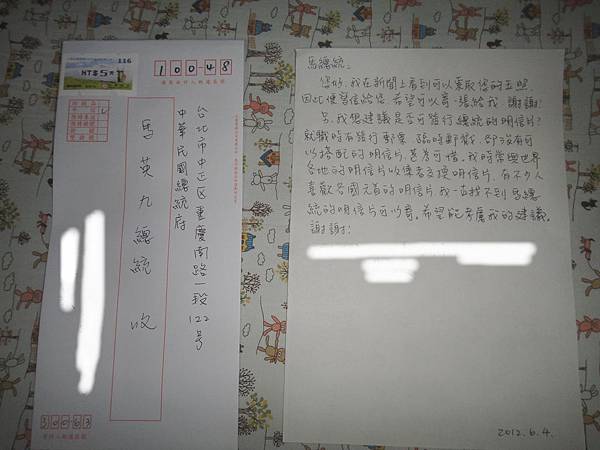 116
NT$5
10048
台北市中正区重慶南路一段122号
中華民國總統府
馬英九總統 收
30063
馬總統：
您好，我在新聞上看到可以索取您的玉照，
因此便寫信給您，希望可以寄一張給我，謝謝！
另，我想建議是否可發行總統的明信片？
就職時有發行郵票、臨時郵幫，卻沒有可
以搭配的明信片，甚為可惜，我時常與世界
各地的明信片收集者交換明信片，有不少人
喜歡各國元首的明信片，我一直找不到馬總
統的明信片可以寄。希望能考慮我的建議。
謝謝！
2012.6.4.